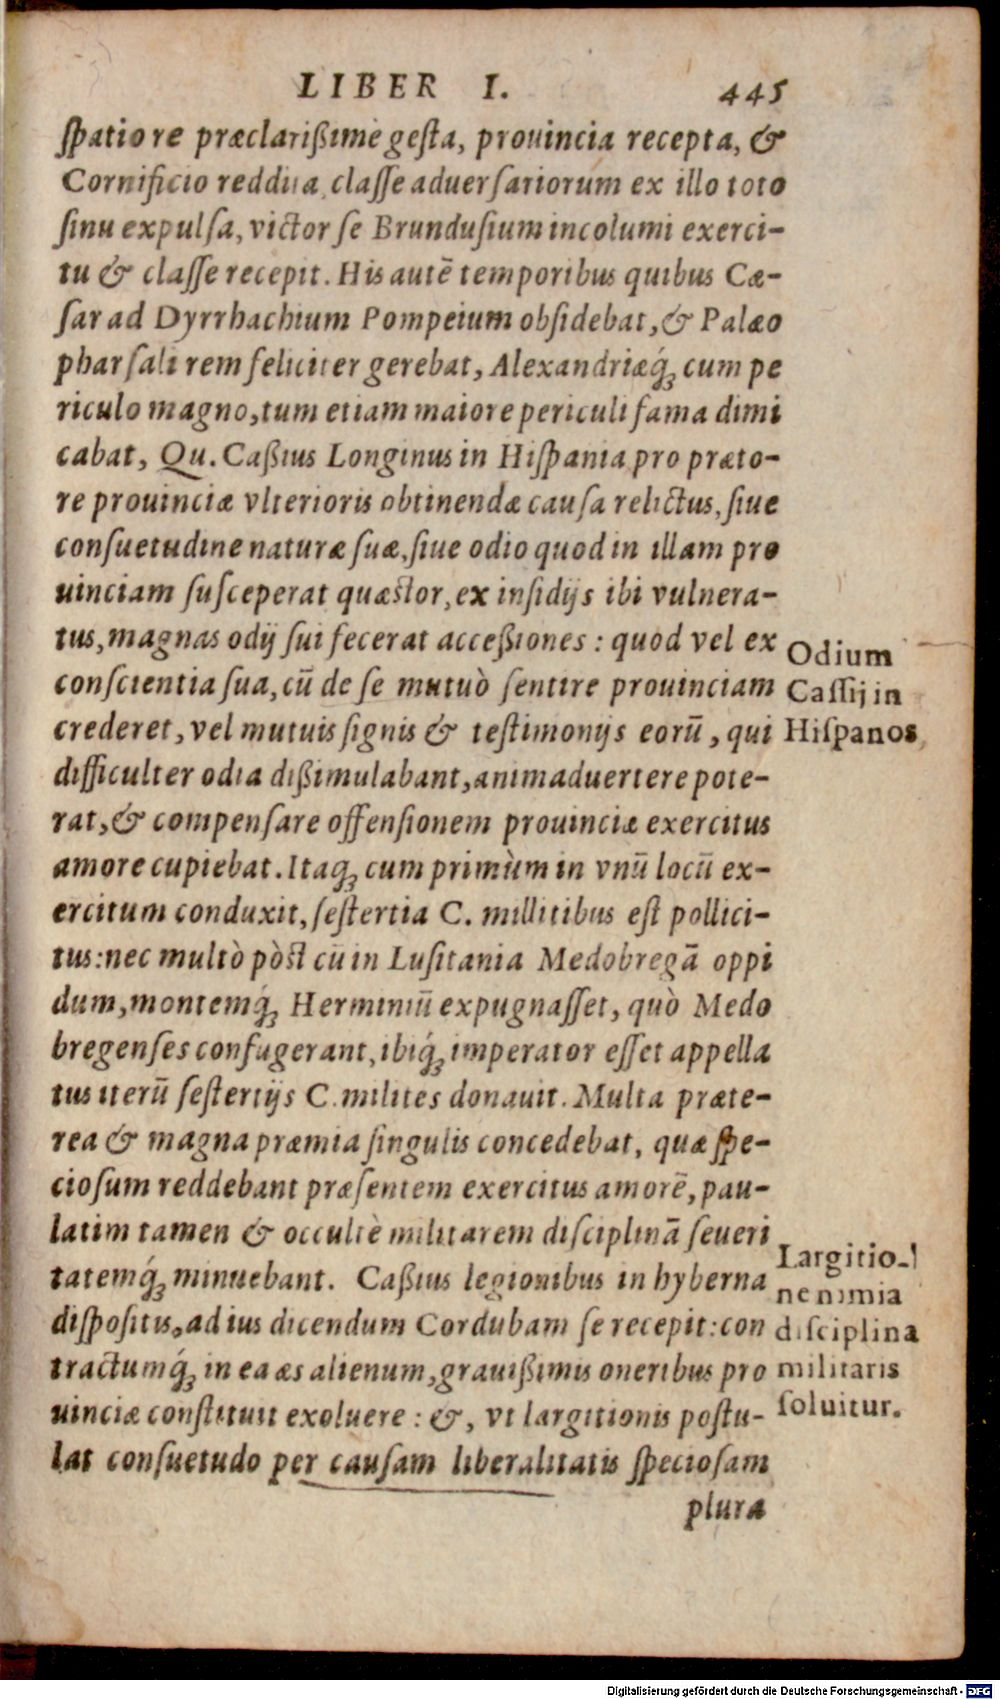 LIBER I. 445
ſpatio re præclarißime geſta, prouincia recepta, &
Cornificio reddita, claſſe aduerſariorum ex illo toto
ſinu expulſa, victor ſe Brunduſium incolumi exerci-
tu & claſſe recepit. His autē temporibus quibus Cæ-
ſar ad Dyrrhachium Pompeium obſidebat, & Palæo
pharſali rem feliciter gerebat, Alexandriæq́ꝫ cum pe
riculo magno, tum etiam maiore periculi fama dimi
cabat, Qu. Caßius Longinus in Hiſpania pro præto-
re prouinciæ vlterioris obtinendæ cauſa relictus, ſiue
conſuetudine naturæ ſuæ, ſiue odio quod in illam pro
uinciam ſuſceperat quæſtor, ex inſidijs ibi vulnera-
tus, magnas odij ſui fecerat acceßiones: quod vel ex
conſcientia ſua, cū de ſe mutuò ſentire prouinciam
crederet, vel mutuis ſignis & teſtimonijs eorū, qui
difficulter odia dißimulabant, animaduertere pote-
rat, & compenſare offenſionem prouinciæ exercitus
amore cupiebat. Itaqꝫ cum primùm in vnū locū ex-
ercitum conduxit, ſeſtertia C. millitibus eſt pollici-
tus: nec multò pòſt cū in Luſitania Medobregā oppi
dum, montemq́ꝫ Herminiū expugnaſſet, quò Medo
bregenſes confugerant, ibiq́ꝫ imperator eſſet appella
tus iterū ſeſtertijs C. milites donauit. Multa præte-
rea & magna præmia ſingulis concedebat, quæ ſpe-
cioſum reddebant præſentem exercitus amorē, pau-
latim tamen & occultè militarem diſciplinā ſeueri
tatemq́ꝫ minuebant. Caßius legionibus in hyberna
diſpoſitis, ad ius dicendum Cordubam ſe recepit: con
tractumq́ꝫ in ea æs alienum, grauißimis oneribus pro
uinciæ conſtituit exoluere: &, vt largitionis poſtu-
lat conſuetudo per cauſam liberalitatis ſpecioſam
plura
Odium
Caſſij in
Hiſpanos
Largitio-
ne nimia
diſciplina
militaris
ſoluitur.
Digitalisierung gefördert durch die Deutsche Forschungsgemeinschaft - DFG